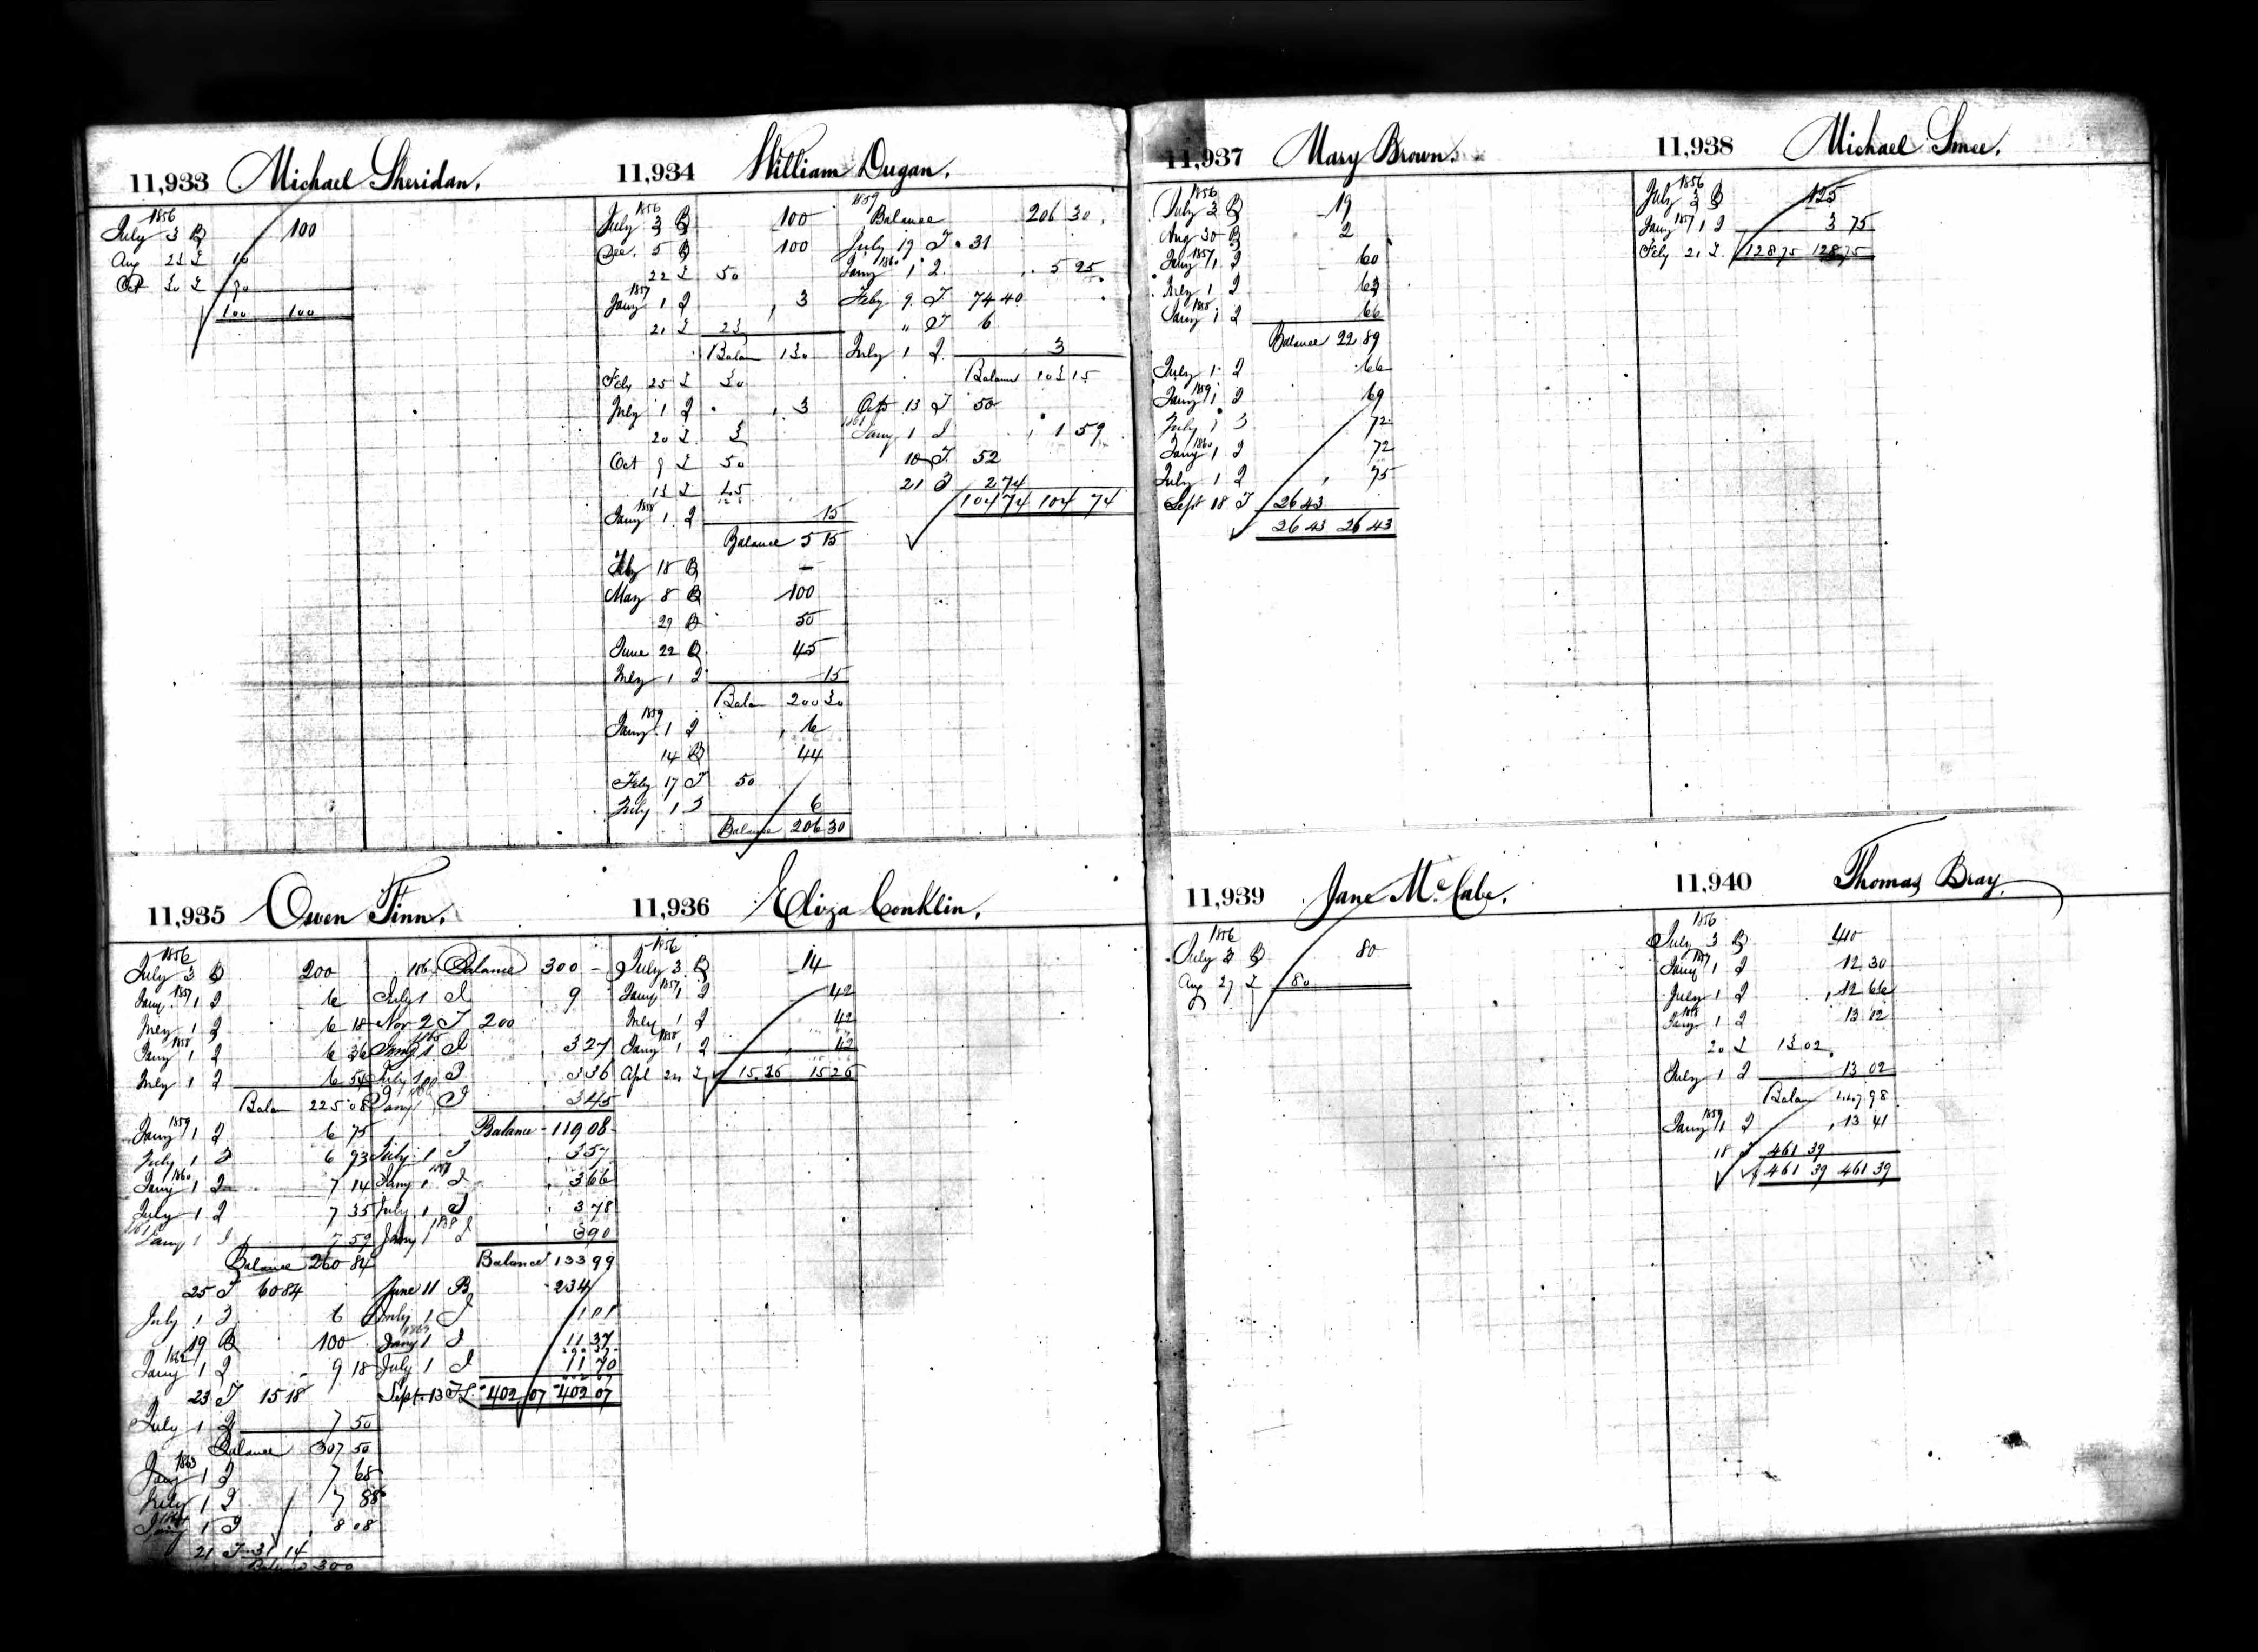 11,933 Michael Sheridan.
1856
July 3 B 100
Aug 23 I 10
Oct 30 I 90
100 100
11,934 William Dugan.
1856
July 3 B 100
Dec. 5 B 100
22 I 50
1857
Jany 1 I 3
21 I 23
Balan 130
Feby 25 I 30
July 1 I 3
20 I 3
Oct 9 I 50
13 I 45
1858
Jany 1 I 15
Balance 5 15
Feby 18 B —
May 8 B 100
29 B 50
June 22 B 45
July 1 I 15
Balan 200 30
1859
Jany 1 I 6
14 B 44
Feby 17 T 50
July 1 I 6
Balance 206 30
1859
Balance 206 30
July 19 T 31
1860
Jany 1 I 5 25
Feby 9 T 74 40
" T 6
July 1 I 3
Balance 103 15
Oct 13 T 50
1861
Jany 1 I 1 59
10 T 52
21 T 2 74
104 74 104 74
11,935 Owen Finn.
1856
July 3 B 200
1857
Jany 1 I 6
July 1 I 6 18
1858
Jany 1 I 6 36
July 1 I 6 54
Balan 225 08
1859
Jany 1 I 6 75
July 1 I 6 93
1860
Jany 1 I 7 14
July 1 I 7 35
1861
Jany 1 I 7 59
Balance 260 84
25 T 60 84
July 1 I 6
19 B 100
1862
Jany 1 I 9 18
23 T 15 18
July 1 I 7 50
Balance 307 50
1863
Jany 1 I 7 68
July 1 I 7 88
1864
Jany 1 I 8 08
21 T 31 14
Balance 300
Balance 300 –
July 1 I 9
Nov 2 T 200
1865
Jany 1 I 3 27
July 1 I 3 36
Jany 1 I 3 45
Balance 119 08
July 1 I 3 57
1867
Jany 1 I 3 66
July 1 I 3 78
1868
Jany 1 I 3 90
Balance 133 99
June 11 B 234
July 1 I
1869
Jany 1 I 11 37
July 1 I 11 70
Sept. 13 402 07 402 07
11,936 Eliza Conklin.
1856
July 3 B 14
1857
Jany 1 I 42
July 1 I 42
1858
Jany 1 I 42
Apl 24 I 15.26 15 26
11,937 Mary Brown.
1856
July 3 B 19
Aug 30 B 2
1857
Jany 1 I 60
July 1 I 63
1858
Jany 1 I 66
Balance 22 89
July 1 I 66
1859
Jany 1 I 69
July 1 I 72
1860
Jany 1 I 72
July 1 I 75
Sept 18 T 26 43
26 43 26 43
11,938 Michael Smee.
1856
July 3 B 125
1857
Jany 1 I 3 75
Feby 21 I 128 75 128 75
11,939 Jane McCabe.
1856
July 3 B 80
Aug 27 I 80
11,940 Thomas Bray.
1856
July 3 B 410
1857
Jany 1 I 12 30
July 1 I 12 66
1858
Jany 1 I 13 02
20 I 13 02
July 1 I 13 02
Balan 447 98
1859
Jany 1 I 13 41
18 T 461 39
461 39 461 39